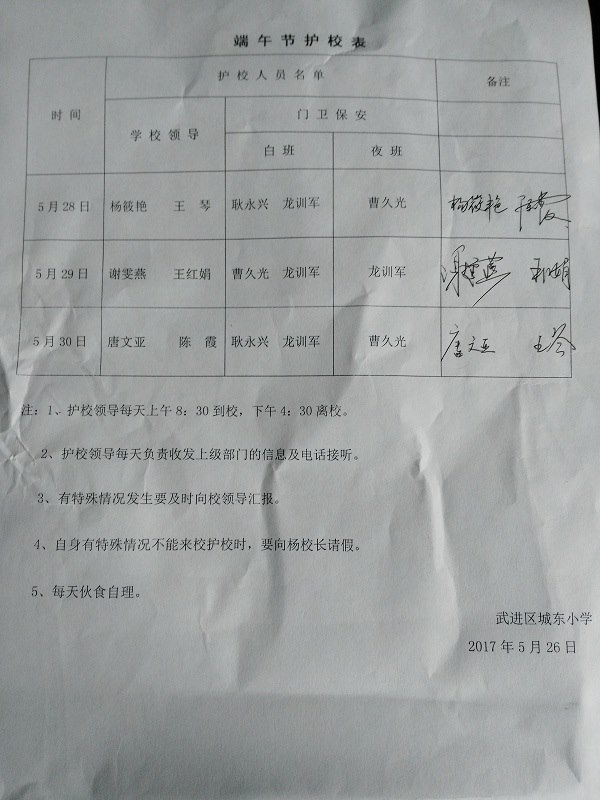 端午节护校表
护校人员名单 备注
时间
学校领导 门卫保安
白班 夜班
5月28日 杨筱艳 王琴 耿永兴 龙训军 曹久光 杨筱艳
5月29日 谢雯燕 王红娟 曹久光 龙训军 龙训军 谢雯燕
5月30日 唐文亚 陈霞 耿永兴 龙训军 曹久光 唐文亚 王琴
注：1、护校领导每天上午8：30到校，下午4：30离校。
2、护校领导每天负责收发上级部门的信息及电话接听。
3、有特殊情况发生要及时向校领导汇报。
4、自身有特殊情况不能来校护校时，要向杨校长请假。
5、每天伙食自理。
武进区城东小学
2017年5月26日